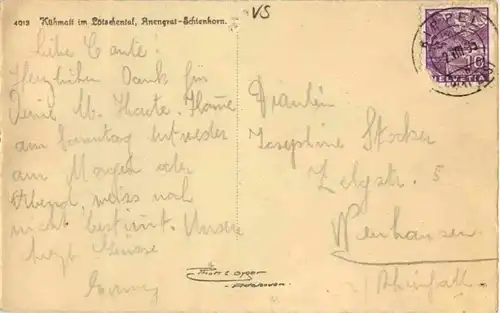 4013 Kühmatt im Lötschental, Anengrat-Schienhorn.
VS
Liebe Tante!
Herzlichen Dank für
Deine l. Karte. Komme
am Sonntag entweder
am Morgen oder
Abend, weiss noch
nicht bestimt. Unsere
herzl. Grüsse
Fräulein
Josephine Stocker
Zelgstr. 5
Neuhausen
a/ Rheinfall.
KAPPEL
10
HELVETIA